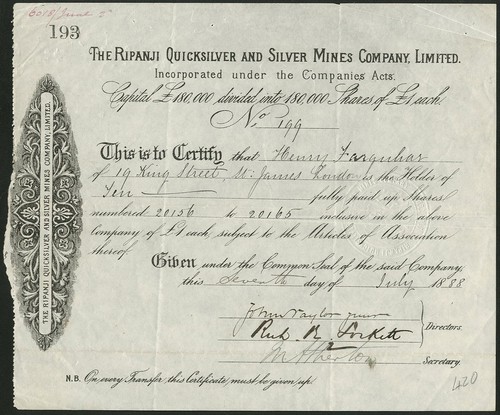 6015/June 5
193
THE RIPANJI QUICKSILVER AND SILVER MINES COMPANY, LIMITED.
Incorporated under the Companies Acts.
Capital £180,000, divided into 180,000 Shares of £1 each.
No. 199
This is to Certify that Henry Farquhar
of 19 King Street, St. James London is the Holder of
Ten fully paid up Shares
numbered 20156 to 20165 inclusive in the above
Company of £1 each, subject to the Articles of Association
thereof.
Given under the Common Seal of the said Company,
this Seventh day of July 1888
John Taylor junr
Rich. R. Lockett
Directors.
Secretary.
N.B. On every Transfer, this Certificate, must be given up
420
THE RIPANJI QUICKSILVER AND SILVER MINES COMPANY, LIMITED.